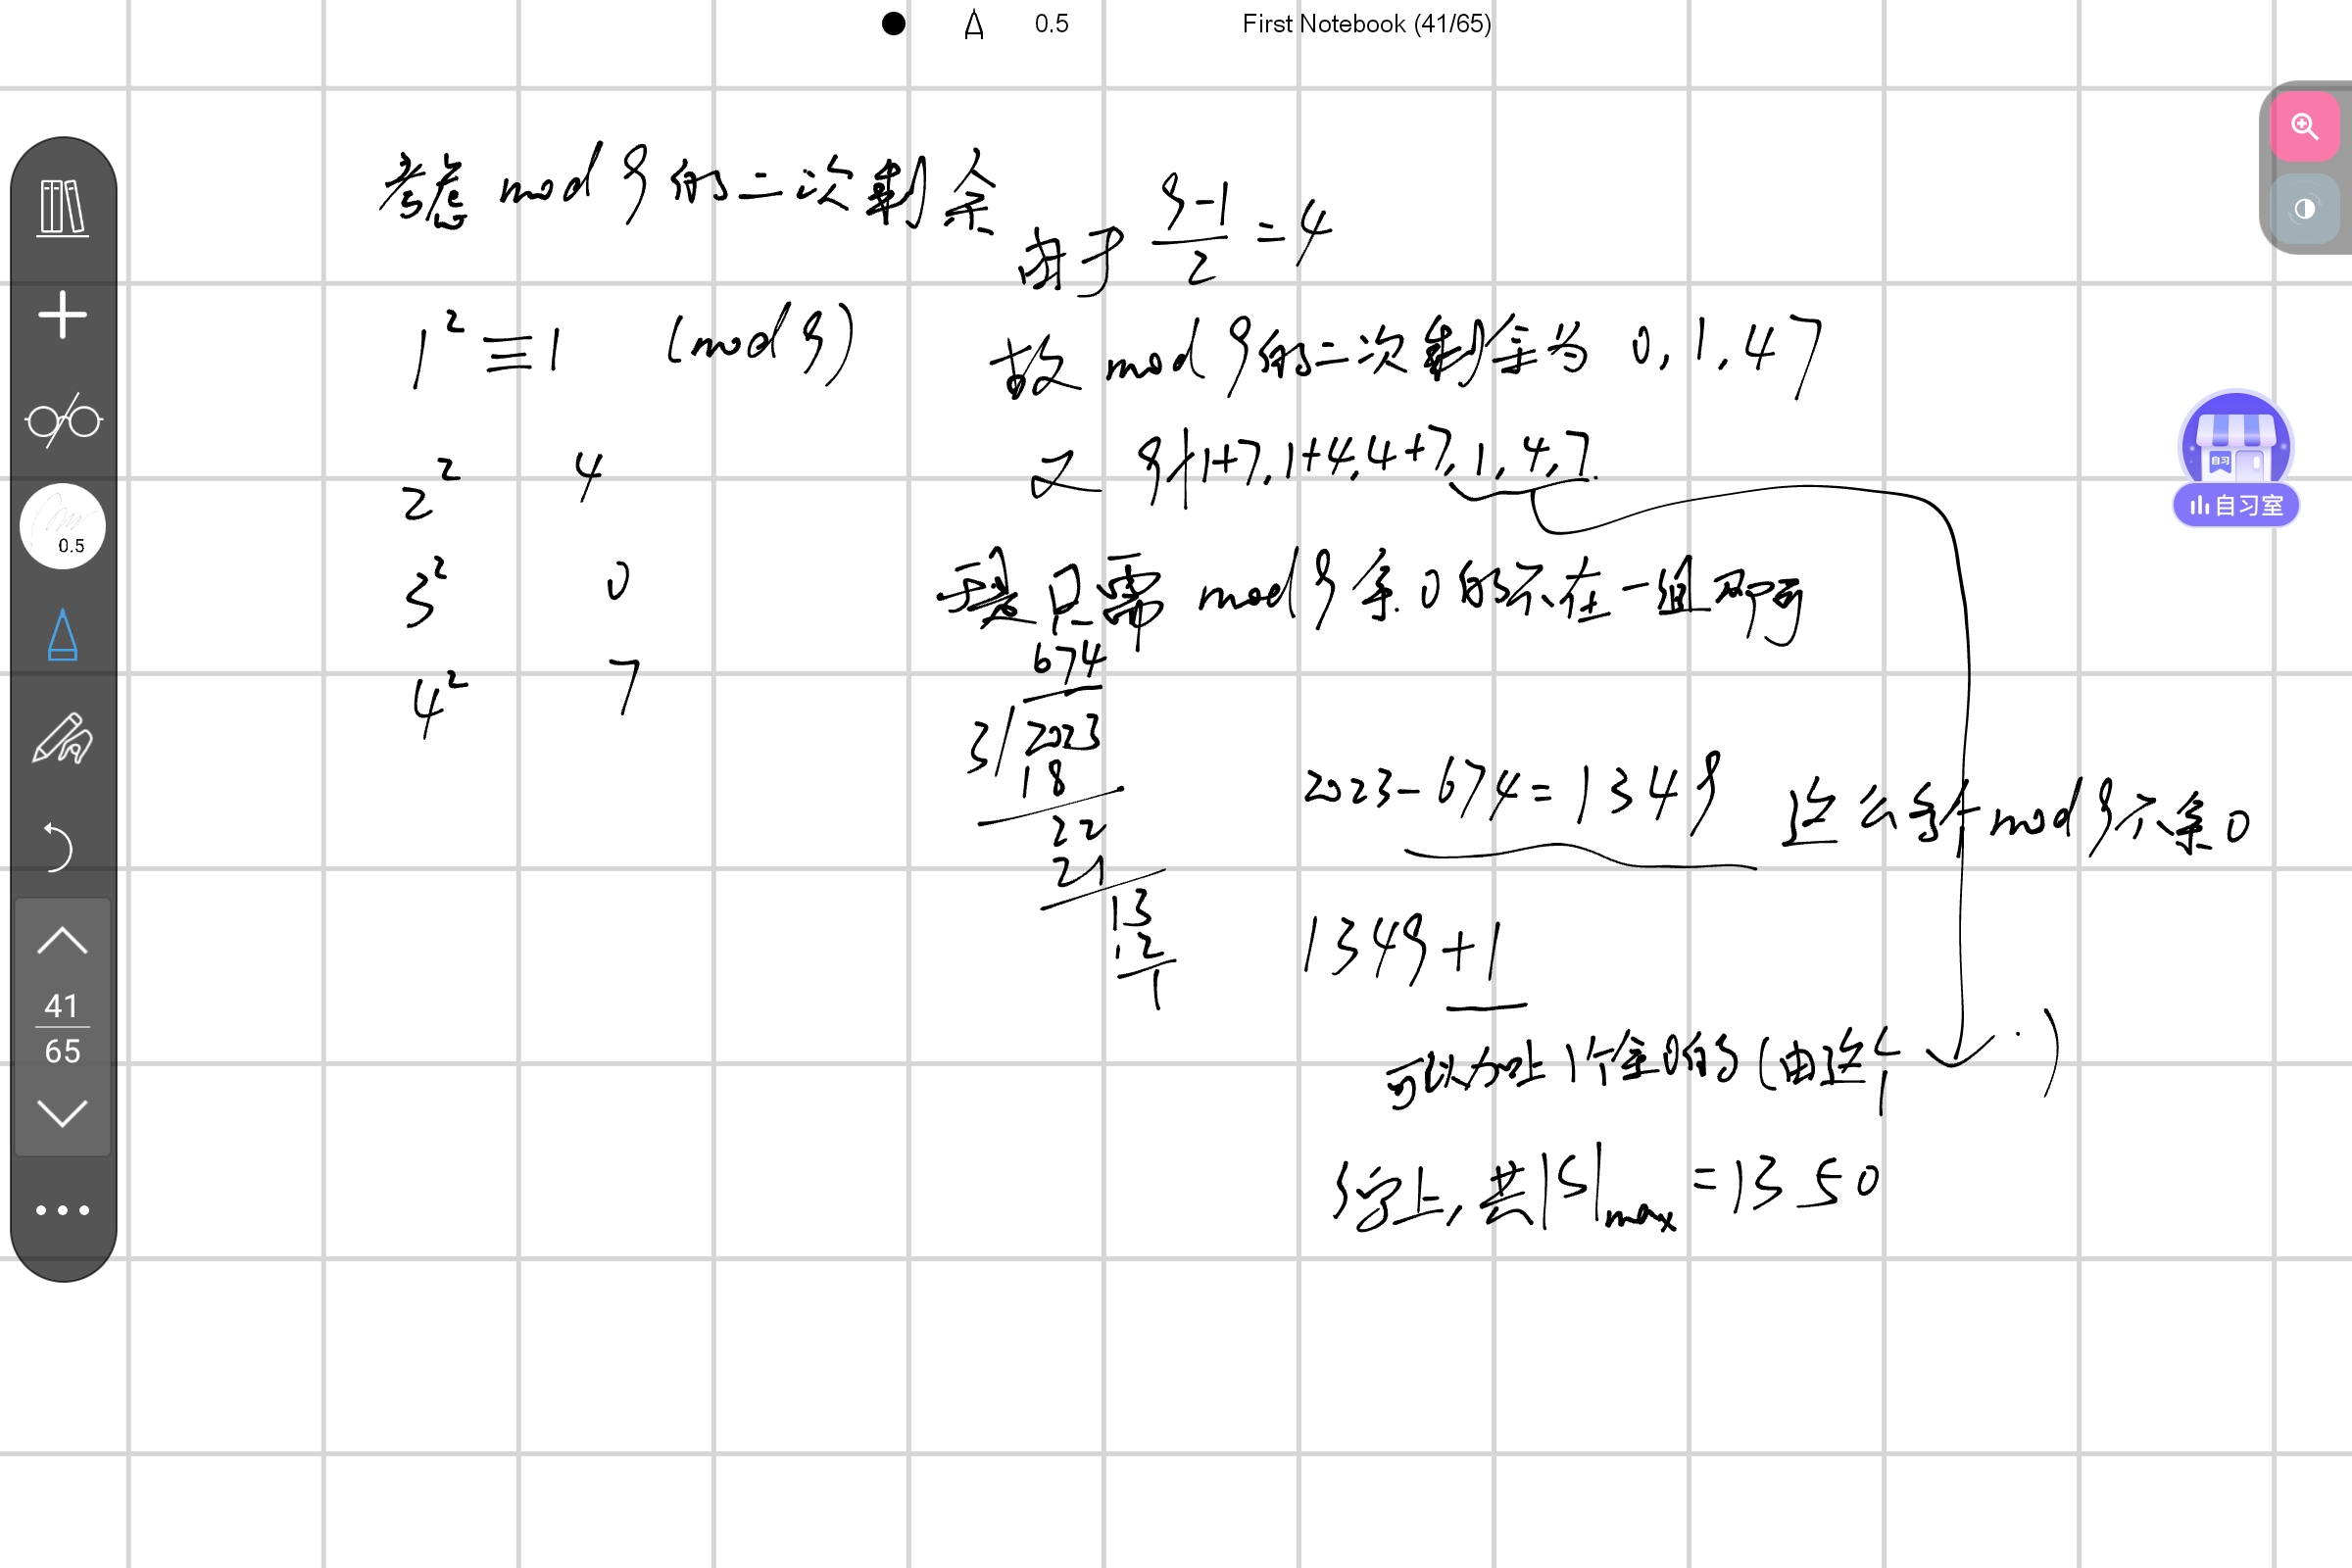 0.5
First Notebook (41/65)
考虑 mod 9 的二次剩余
1² ≡ 1 (mod 9)
2² 4
3² 0
4² 7
由于 (9-1)/2 = 4
故 mod 9 的二次剩余为 0, 1, 4 7
又 9∤1+7, 1+4, 4+7, 1, 4, 7.
于是只需 mod 9 余 0 的不在一组即可
674
3/2023
18
22
21
13
12
1
2023-674=1349 这么多个 mod 9 不余 0
1349+1
可以加上 1个余0的 (由这个 .)
综上, 共|S|max = 1350
0.5
41
65
自习
自习室